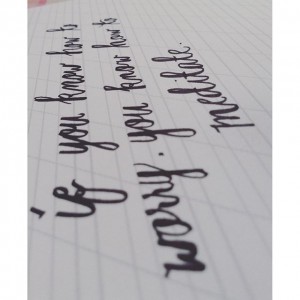 if you know how to
worry. you know how to
meditate.